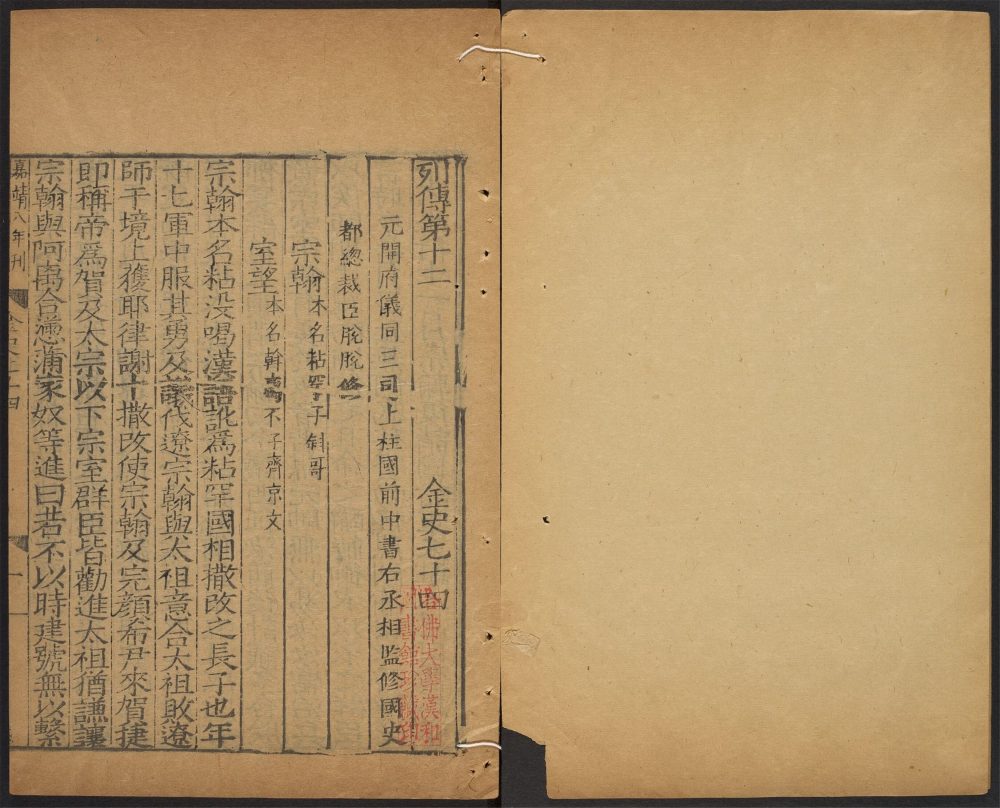 列傳第十二 金史七十四
元開府儀同三司上柱國前中書右丞相監修國史
都總裁臣脫脫修
宗翰本名粘罕子斜哥
室望本名斡离不子齊京文
宗翰本名粘没喝漢語訛爲粘罕國相撒改之長子也年
十七軍中服其勇及議伐遼宗翰與太祖意合太祖敗遼
師于境上獲耶律謝十撒改使宗翰及完顏希尹來賀捷
即稱帝爲賀及太宗以下宗室群臣皆勸進太祖猶謙讓
宗翰與阿离合懣蒲家奴等進曰若不以時建號無以繫
嘉靖八年刊
哈佛大學漢和圖書館珍藏印